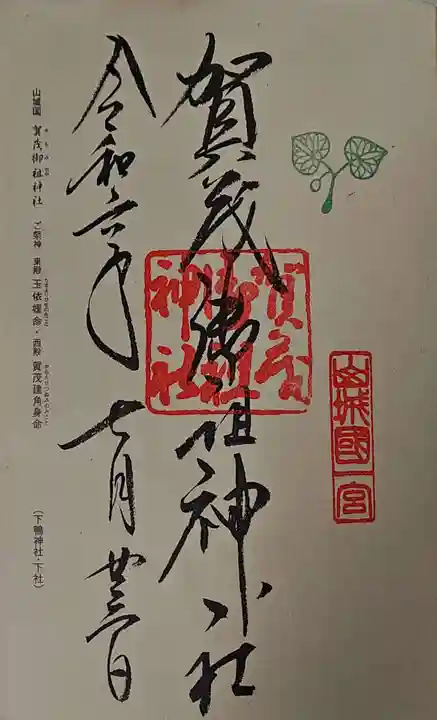 山城國一宮
賀茂御祖神社
賀茂御祖神社
令和六年 七月廿三日
山城国 賀茂御祖神社 ご祭神 東殿 玉依媛命・西殿 賀茂建角身命
(下鴨神社・下社)